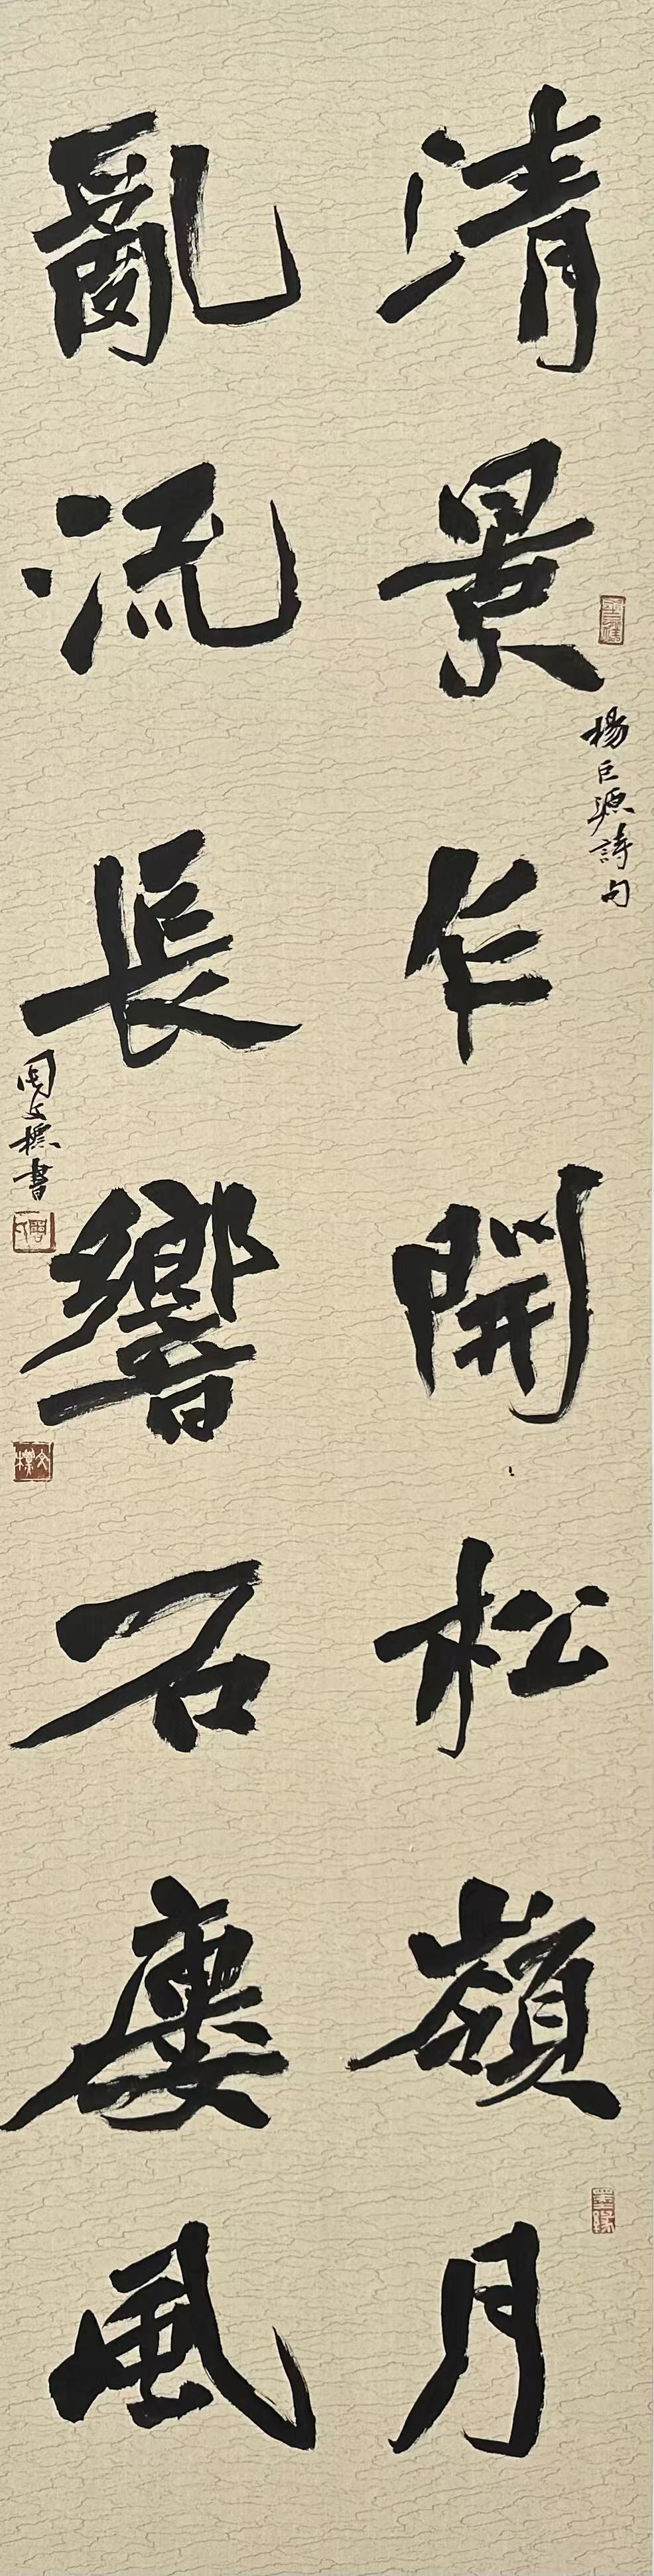 清景乍開松嶺月
楊巨源詩句
亂流長響石廔風
周文標書
文標